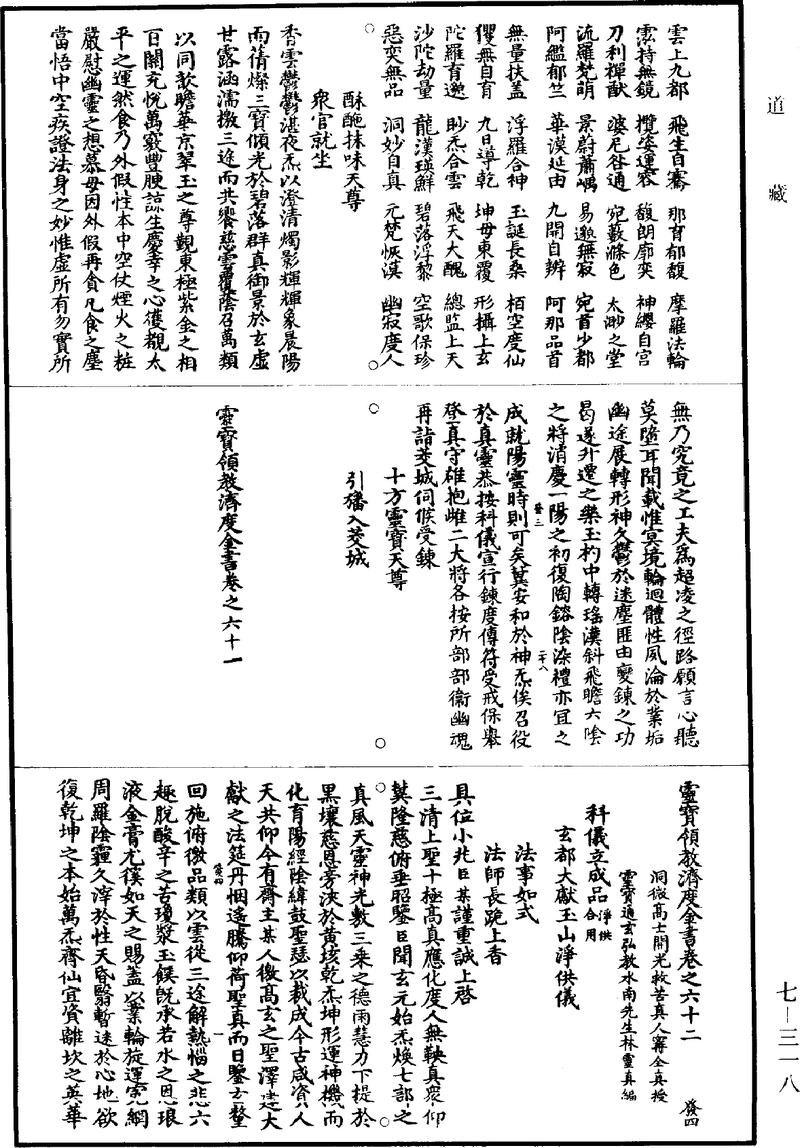 道藏
雲上九都　飛生自騫　那育郁馥　摩羅法輪
霐持無鏡　攬姿運容　馥朗廓奕　神纓自宮
刀利禪猷　婆尼咎通　宛藪滌色　太眇之堂
流羅梵萌　景蔚蕭嵎　易邈無寂　宛首少都
阿鑑郁竺　華漠延由　九開自辯　阿那品首
無量扶蓋　浮羅合神　玉誕長桑　栢空度仙
獶無自育　九日導乾　坤母東覆　形攝上玄
陀羅育邈　眇炁合雲　飛天大醜　總監上天
沙陀劫量　龍漢瑛鮮　碧落浮黎　空歌保珍
惡奕無品　洞妙自真　元梵恢漠　幽寂度人
酥酏抹味天尊
衆官就坐
香雲鬱鬱湛夜炁以澄清燭影輝輝象晨陽
而蒨燦三寶傾光於碧落群真御景於玄虛
甘露涵濡撤三途而共饗慈雲覆陰召萬類
以同歆瞻華京翠玉之尊觀東極紫金之相
百關充悅萬竅豐腴諒生慶幸之心獲覩太
平之運然食乃外假性本中空仗煙火之粧
嚴慰幽靈之想慕毋因外假再貪凡食之塵
當悟中空疾證法身之妙惟虛所有勿實所
無乃究竟之工夫爲超凌之徑路願言心聽
莫墮耳聞載惟冥境輪迴體性夙淪於業垢
幽途展轉形神久鬱於迷塵匪由變鍊之功
曷遂升遷之樂玉杓中轉瑤漢斜飛瞻六陰
之將消慶一陽之初復陶鎔陰染禮亦宜之
成就陽靈時則可矣冀安和於神炁俟召役
於真靈恭按科儀宣行鍊度傳符受戒保舉
登真守雄抱雌二大將各按所部部衛幽魂
再詣茭城伺候受鍊
十方靈寶天尊
引旛入茭城
靈寶領教濟度金書卷之六十一
靈寶領教濟度金書卷之六十二　發四
洞微高士開光救苦真人甯全真授
靈寶通玄弘教水南先生林靈真編
科儀立成品淨供合用
玄都大獻玉山淨供儀
法事如式
法師長跪上香
具位小兆臣某謹重誠上啓
三清上聖十極高真應化度人無鞅真衆仰
冀隆慈俯垂昭鑒臣聞玄元始炁煥七部之
真風天靈神光敷三乘之德雨慧力下提於
黑壤慈恩旁浹於黃垓乾炁坤形運神機而
化育陽經陰緯鼓聖瑟以裁成今古咸資人
天共仰今有齋主某人徼高玄之聖澤建大
獻之法筵丹悃遙騰仰荷聖真而日鑒方整
回施俯徹品類以雲從三途解熱惱之悲六
趣脫酸辛之苦瓊漿玉饌旣承若水之恩琅
液金膏尤徯如天之賜蓋以業輪旋運冤網
周羅陰霾久滓於性天昏翳暫迷於心地欲
復乾坤之本始萬炁齊仙宜資離坎之英華
七－三一八